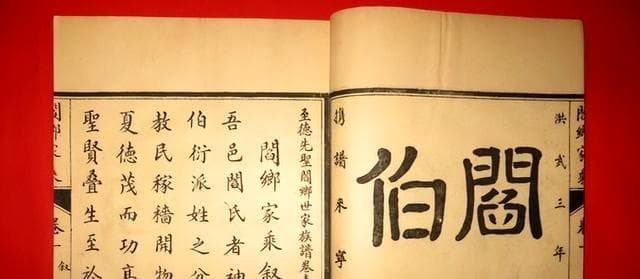 閻鄉家乘
洪武三年
閻伯
携譜來寧
至德先聖閻鄉世家族譜卷
閻鄉家乘叙
吾邑閻氏者神
伯衍派姓之分
教民稼穡開物
夏德茂而功高
聖賢叠生至於
閻鄉家乘 卷一 叙